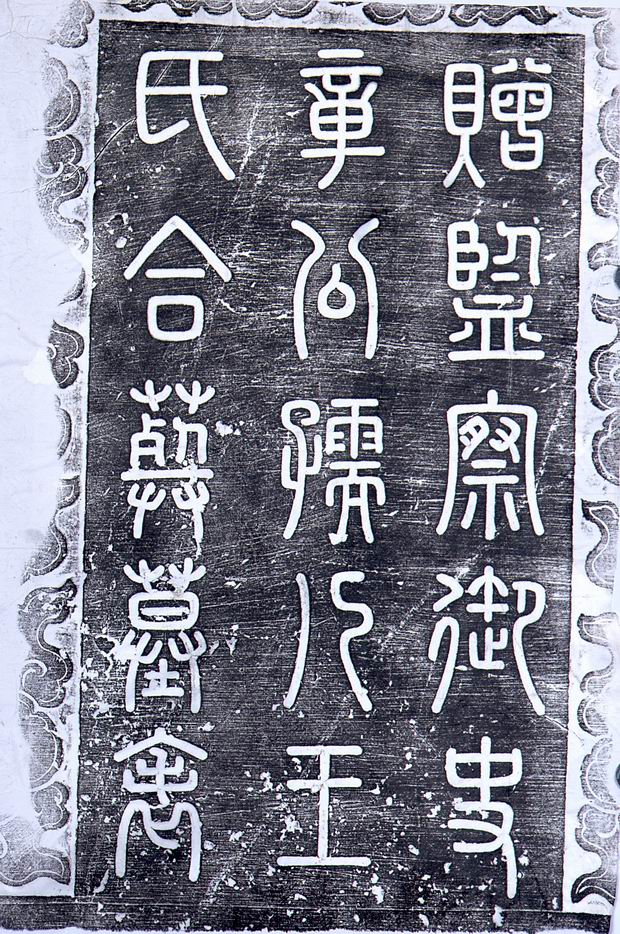 贈監察御史
章公孺人王
氏合葬墓表